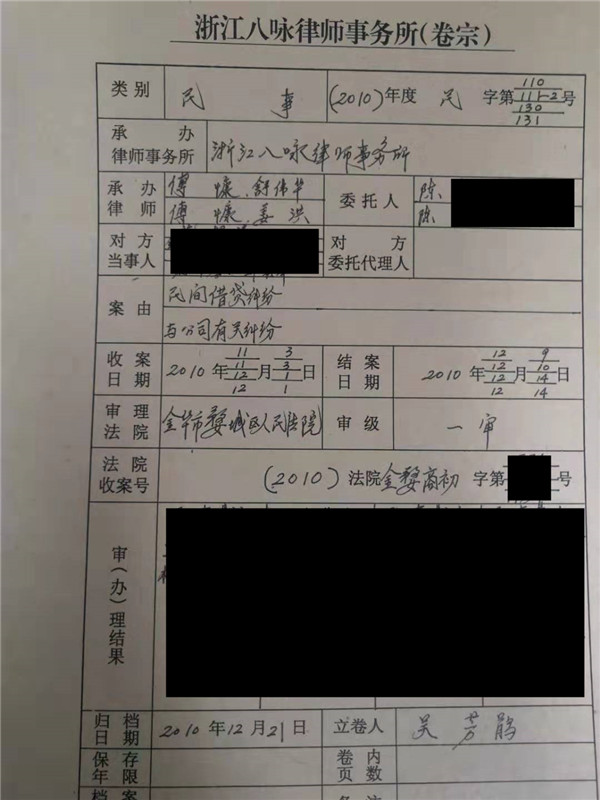 浙江八咏律师事务所(卷宗)
类别 民 事 (2010)年度 民 字第 110 111-2 130 131 号
承办律师事务所 浙江八咏律师事务所
承办律师 傅慷、舒伟华 委托人 陈
傅慷、姜洪 陈
对方当事人 对方委托代理人
案由 民间借贷纠纷
与公司有关纠纷
收案日期 2010年 11 11 12 12 月 3 3 1 1 日 结案日期 2010年 12 12 12 12 月 9 10 14 14 日
审理法院 金华市婺城区人民法院 审级 一审
法院收案号 (2010)法院金婺商初 字第 号
审(办)理结果
归档日期 2010年12月21日 立卷人 吴芳鹃
保存年限 卷内页数
档案